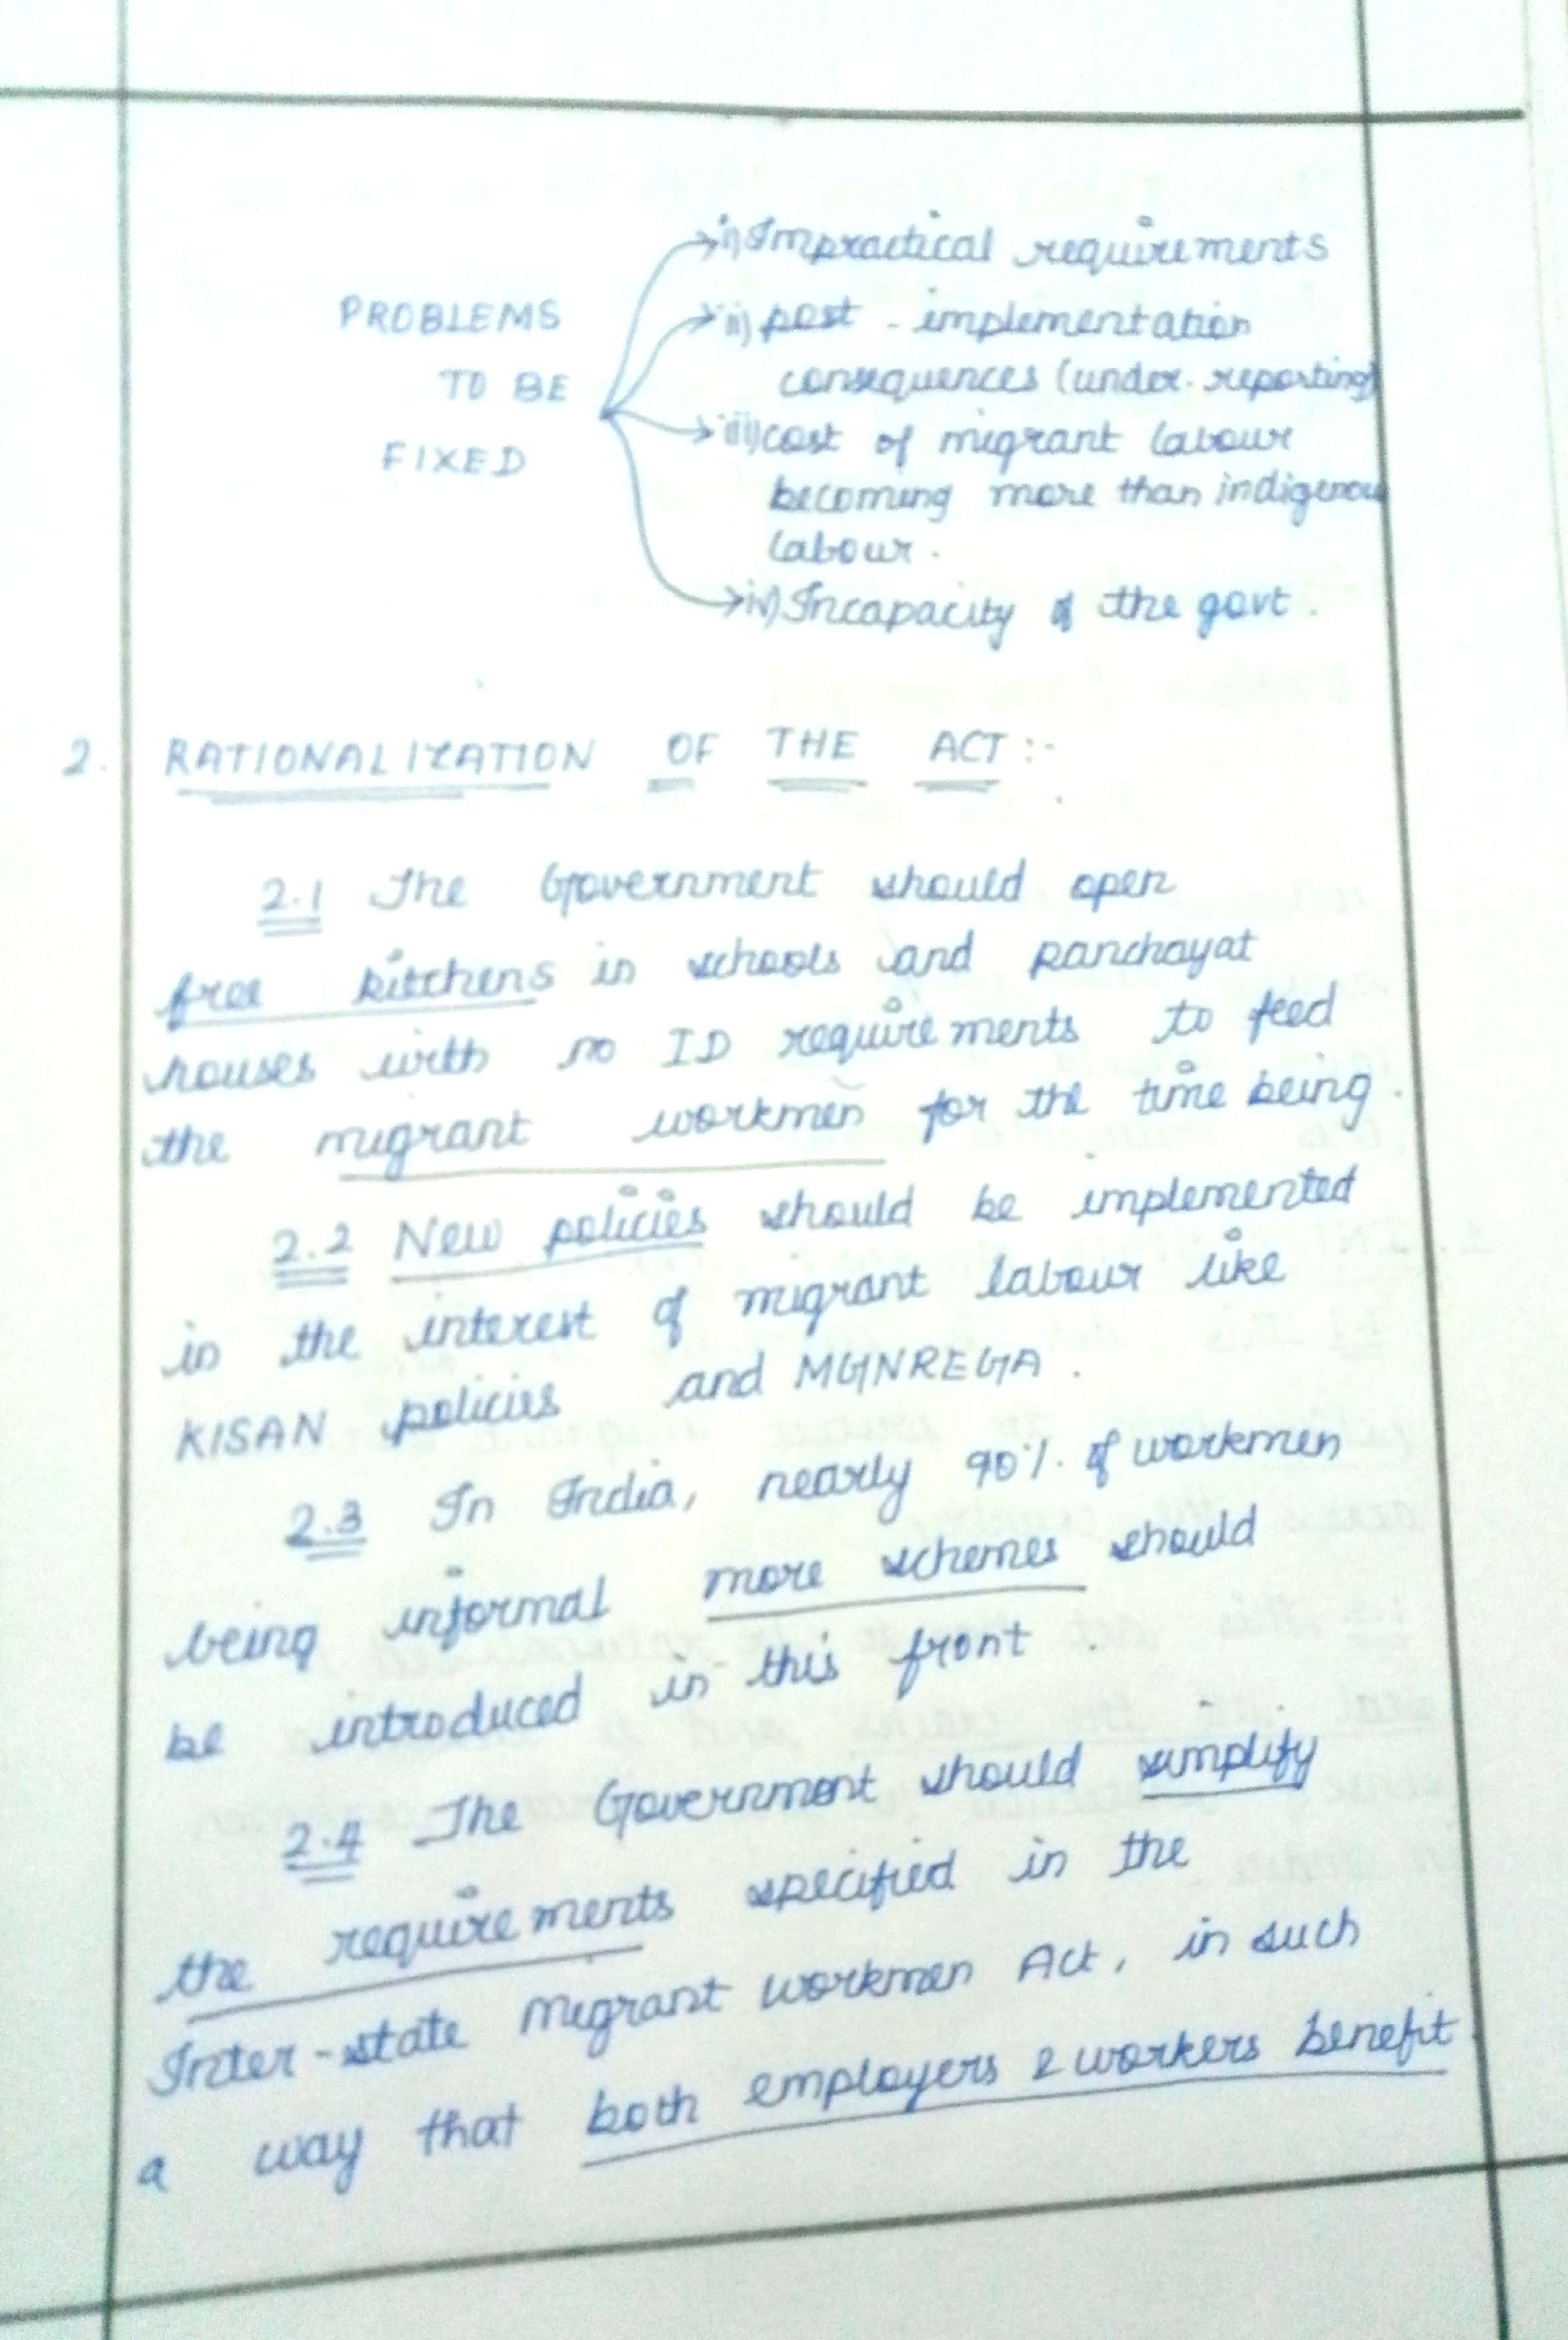 PROBLEMS
TO BE
FIXED
i) Impractical requirements
ii) post - implementation
consequences (under-reporting)
iii) cost of migrant labour
becoming more than indigenou
labour.
iv) Incapacity of the govt.
2. RATIONALIZATION OF THE ACT :-
2.1 The Government should open
free kitchens in schools and panchayat
houses with no ID requirements to feed
the migrant workmen for the time being.
2.2 New policies should be implemented
in the interest of migrant labour like
KISAN policies and MGNREGA.
2.3 In India, nearly 90% of workmen
being informal more schemes should
be introduced in this front.
2.4 The Government should simplify
the requirements specified in the
Inter-state Migrant workmen Act, in such
a way that both employers & workers benefit.